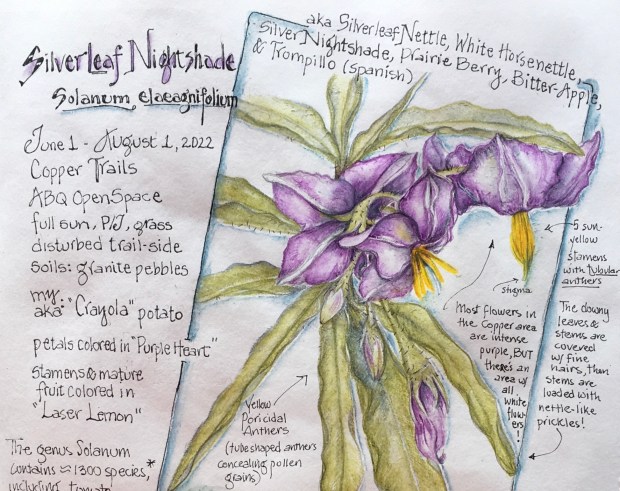 Silverleaf Nightshade
Solanum elaeagnifolium
aka Silverleaf Nettle, White Horsenettle,
Silver Nightshade, Prairie Berry, Bitter-Apple,
& Trompillo (Spanish)
June 1 - August 1, 2022
Copper Trails
ABQ OpenSpace
full sun, P/J, grass
disturbed trail-side
soils: granite pebbles
my
aka: "Crayola" potato
petals colored in "Purple Heart"
stamens & mature
fruit colored in
"Laser Lemon"
The genus Solanum
contains ≈ 1300 species,*
including tomato
Yellow
Poricidal
Anthers
(tube shaped anthers
concealing pollen
grains)
stigma
Most flowers in
the Copper area
are intense
purple, BUT
there's an
area w/
all
white
flow-
ers!
5 sun-
yellow
stamens
with tubular
anthers
The downy
leaves &
stems are
covered
w/ fine
hairs, than
stems are
loaded with
nettle-like
prickles!